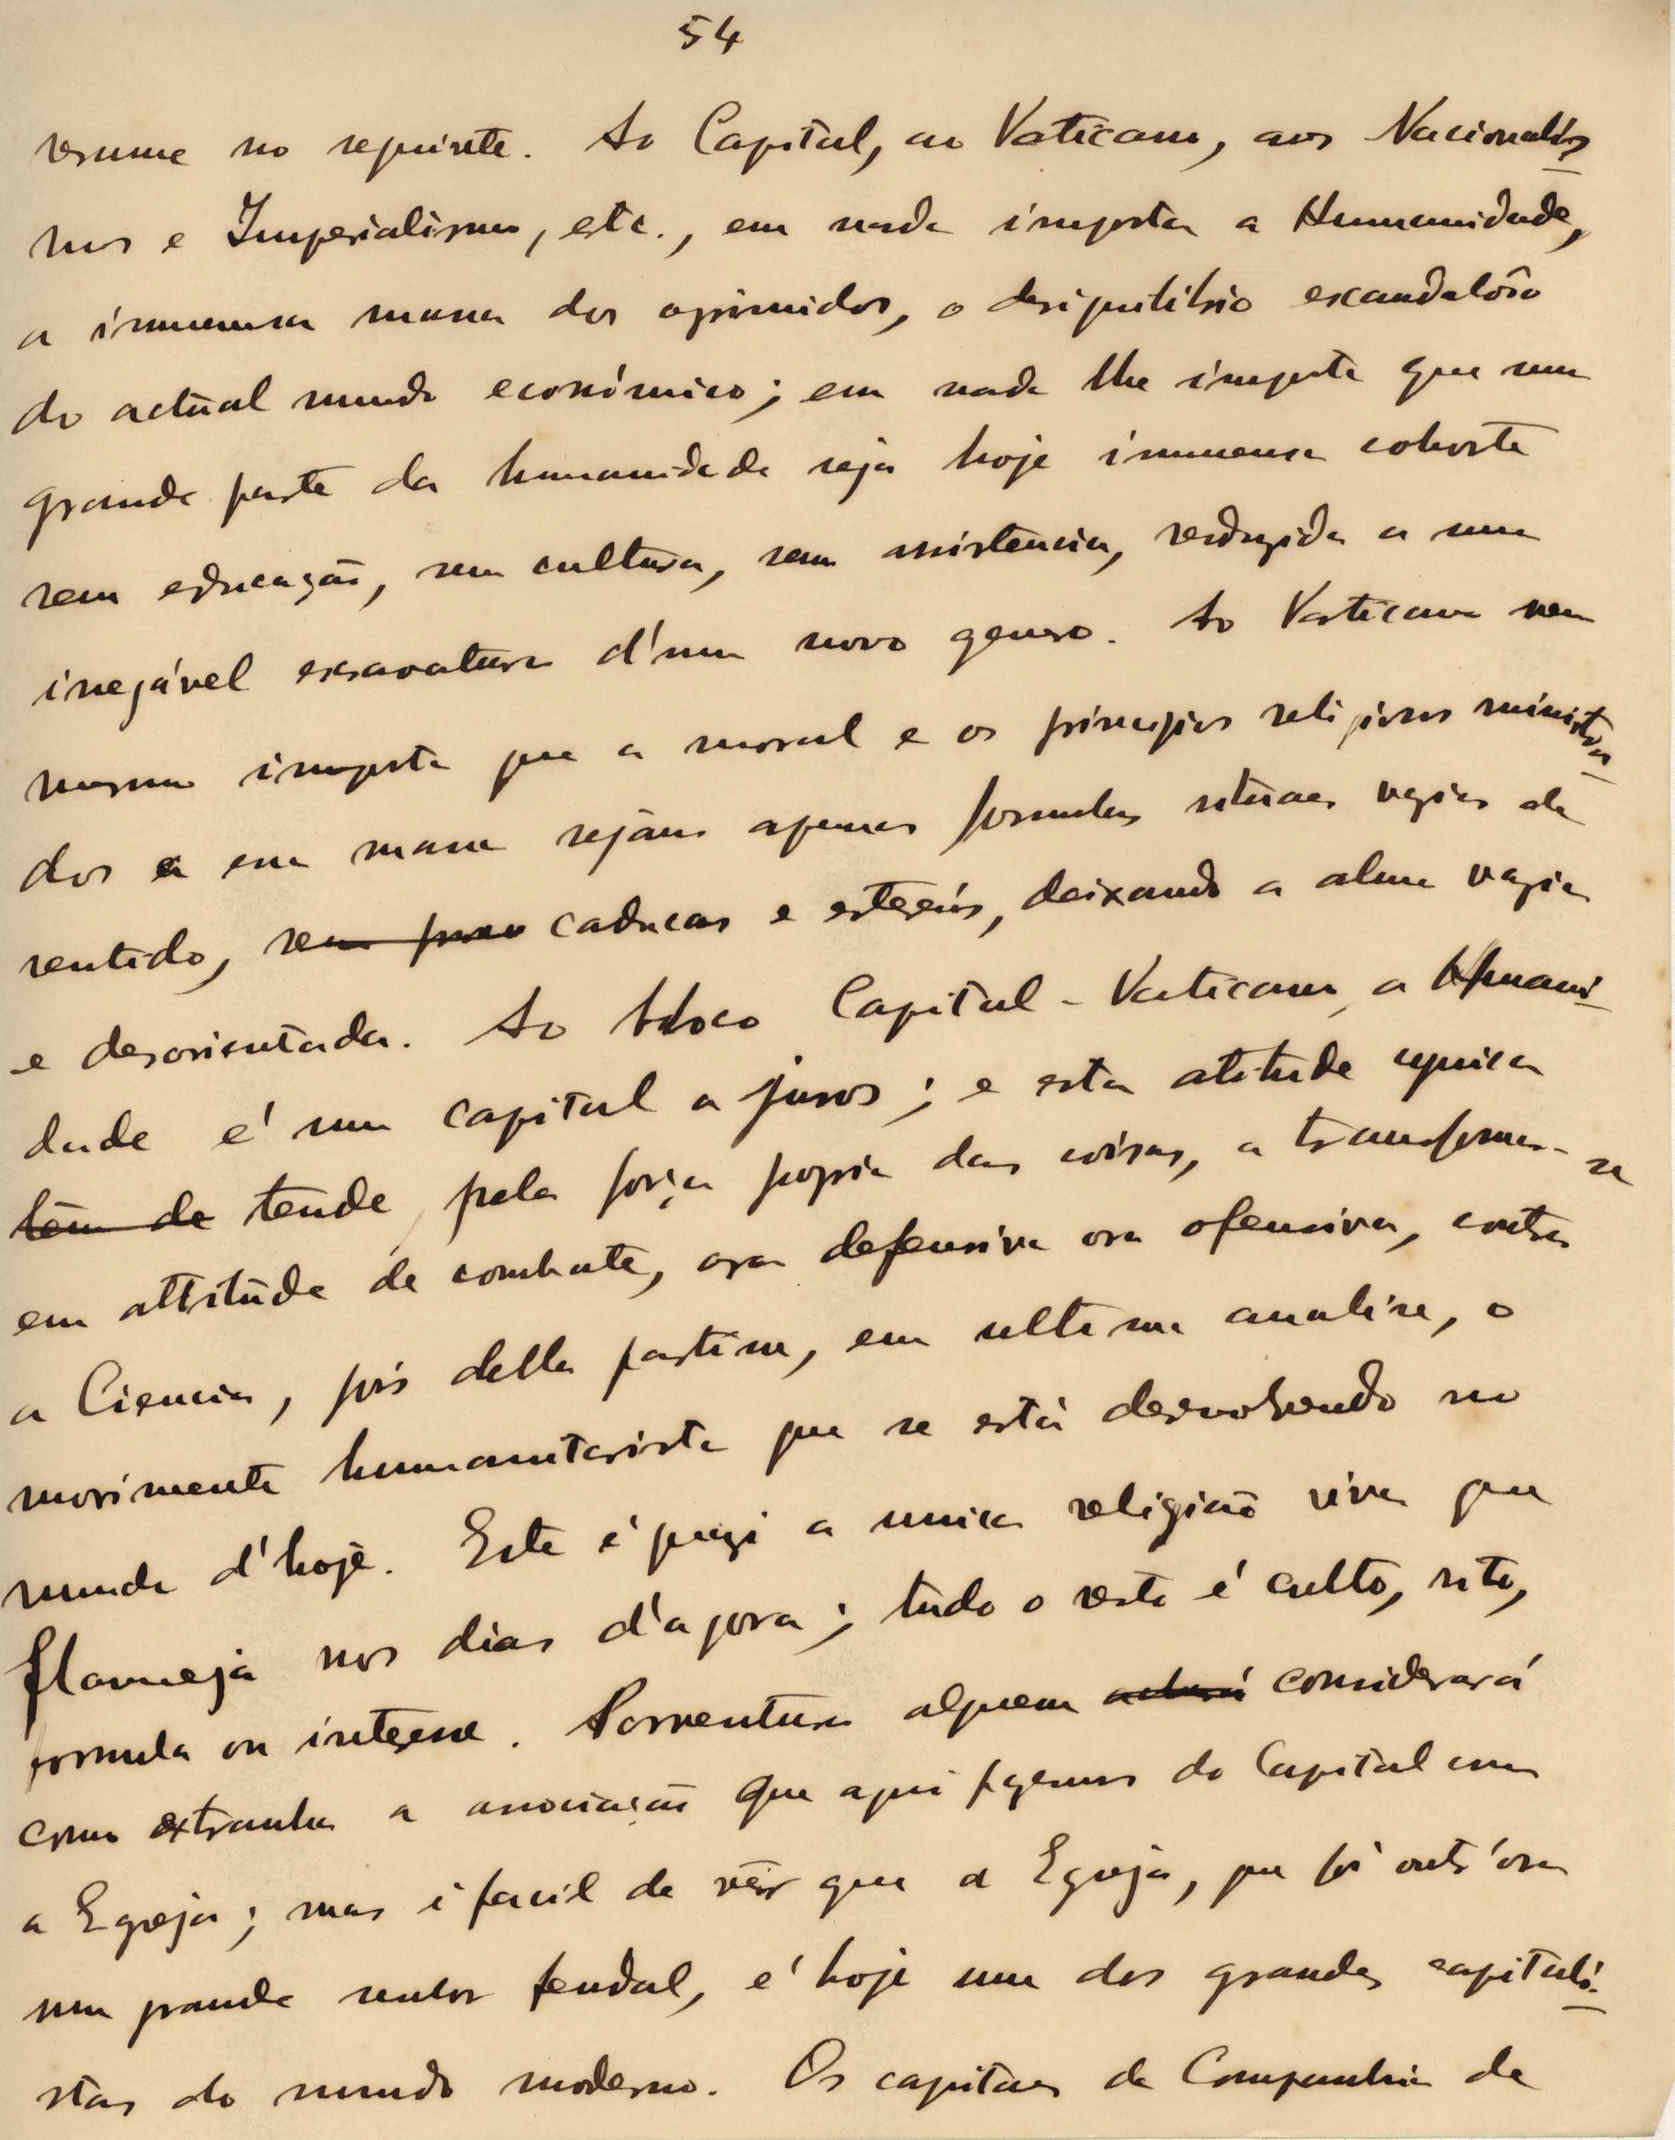 54
resume no seguinte. Ao Capital, ao Vaticano, aos Nacionalis-
mos e Imperialismos, etc., em nada importa a Humanidade,
a immensa massa dos oprimidos, o desiquilibrio escandalôso
do actual mundo económico; em nada lhe importa que um
grande parte da humanidade seja hoje immensa cohorte
sem educação, sem cultura, sem assistencia, reduzida a um
inegável escravatura d'um novo genero. Ao Vaticano nem
mesmo importa que a moral e os principios religiosos ministra-
dos a em massa sejam apenas formulas rituaes vazias de
sentido, sem caducas e estereis, deixando a alma vazia
e desorientada. Ao bloco Capital-Vaticano, a Humani-
dade é um capital a juros; e esta atitude cynica
têm de tende, pela força propria das coisas, a transformar-se
em attitude de combate, ora defensiva ora ofensiva, contra
a Ciencia, pois della partiu, em ultima analise, o
movimento humanitarista que se está desenvolvendo no
mundo d'hoje. Este é quazi a unica religião viva que
flameja nos dias d'agora; tudo o resto é culto, rito,
formula ou interesse. Porventura alguem achará considerará
como extranha a associação que aqui fazemos do Capital com
a Egreja; mas é facil de vêr que a Egreja, que foi outr'ora
um grande senhor feudal, é hoje um dos grandes capitali-
stas do mundo moderno. Os capitaes da Companhia de